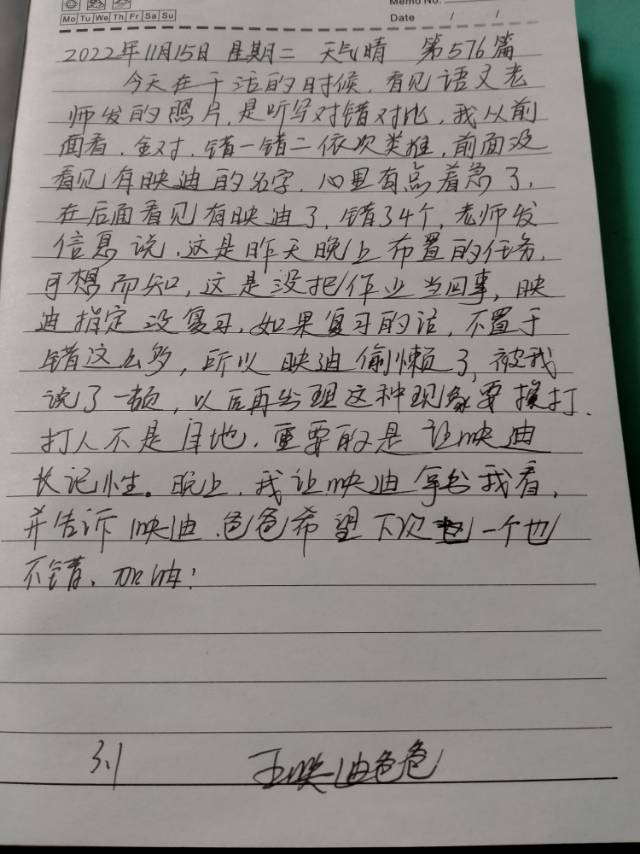 Memo No.
Mo Tu We Th Fr Sa Su
Date / /
2022年11月15日 星期二 天气晴 第576篇
今天在干活的时候,看见语文老
师发的照片,是听写对错对比,我从前
面看,全对,错一错二依次类推,前面没
看见有映迪的名字,心里有点着急了,
在后面看见有映迪了,错了4个,老师发
信息说,这是昨天晚上布置的任务,
可想而知,这是没把作业当回事,映
迪指定没复习,如果复习的话,不置于
错这么多,所以映迪偷懒了,被我
说了一顿,以后再出现这种现象要挨打,
打人不是目地,重要的是让映迪
长记性。晚上,我让映迪写给我看,
并告诉映迪,爸爸希望下次一个也
不错,加油!
王映迪爸爸